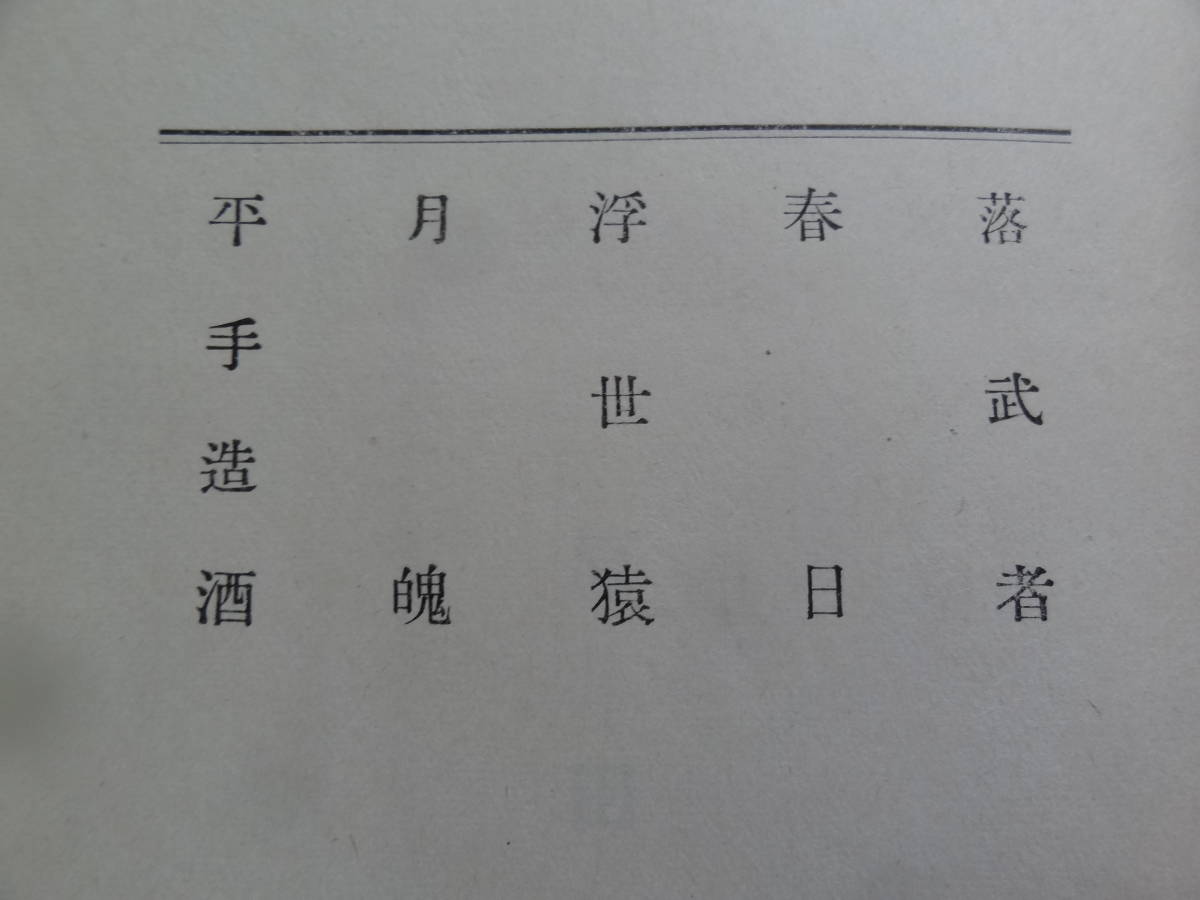 落武者
春日
浮世猿
月魄
平手造酒